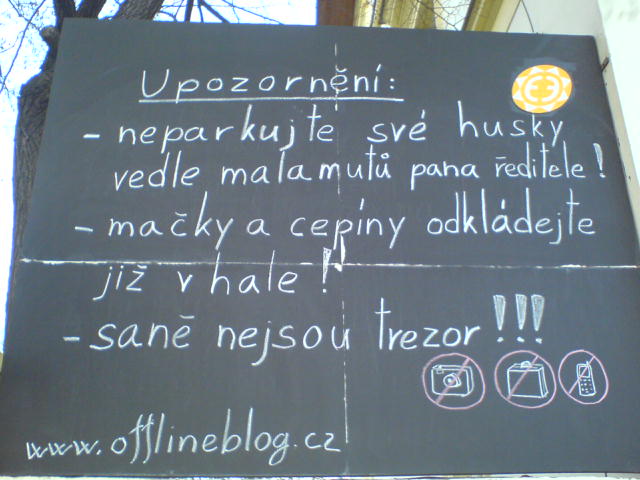 Upozornění:
- neparkujte své husky
vedle malamutů pana ředitele!
- mačky a cepíny odkládejte
již v hale!
- saně nejsou trezor!!!
www.offlineblog.cz